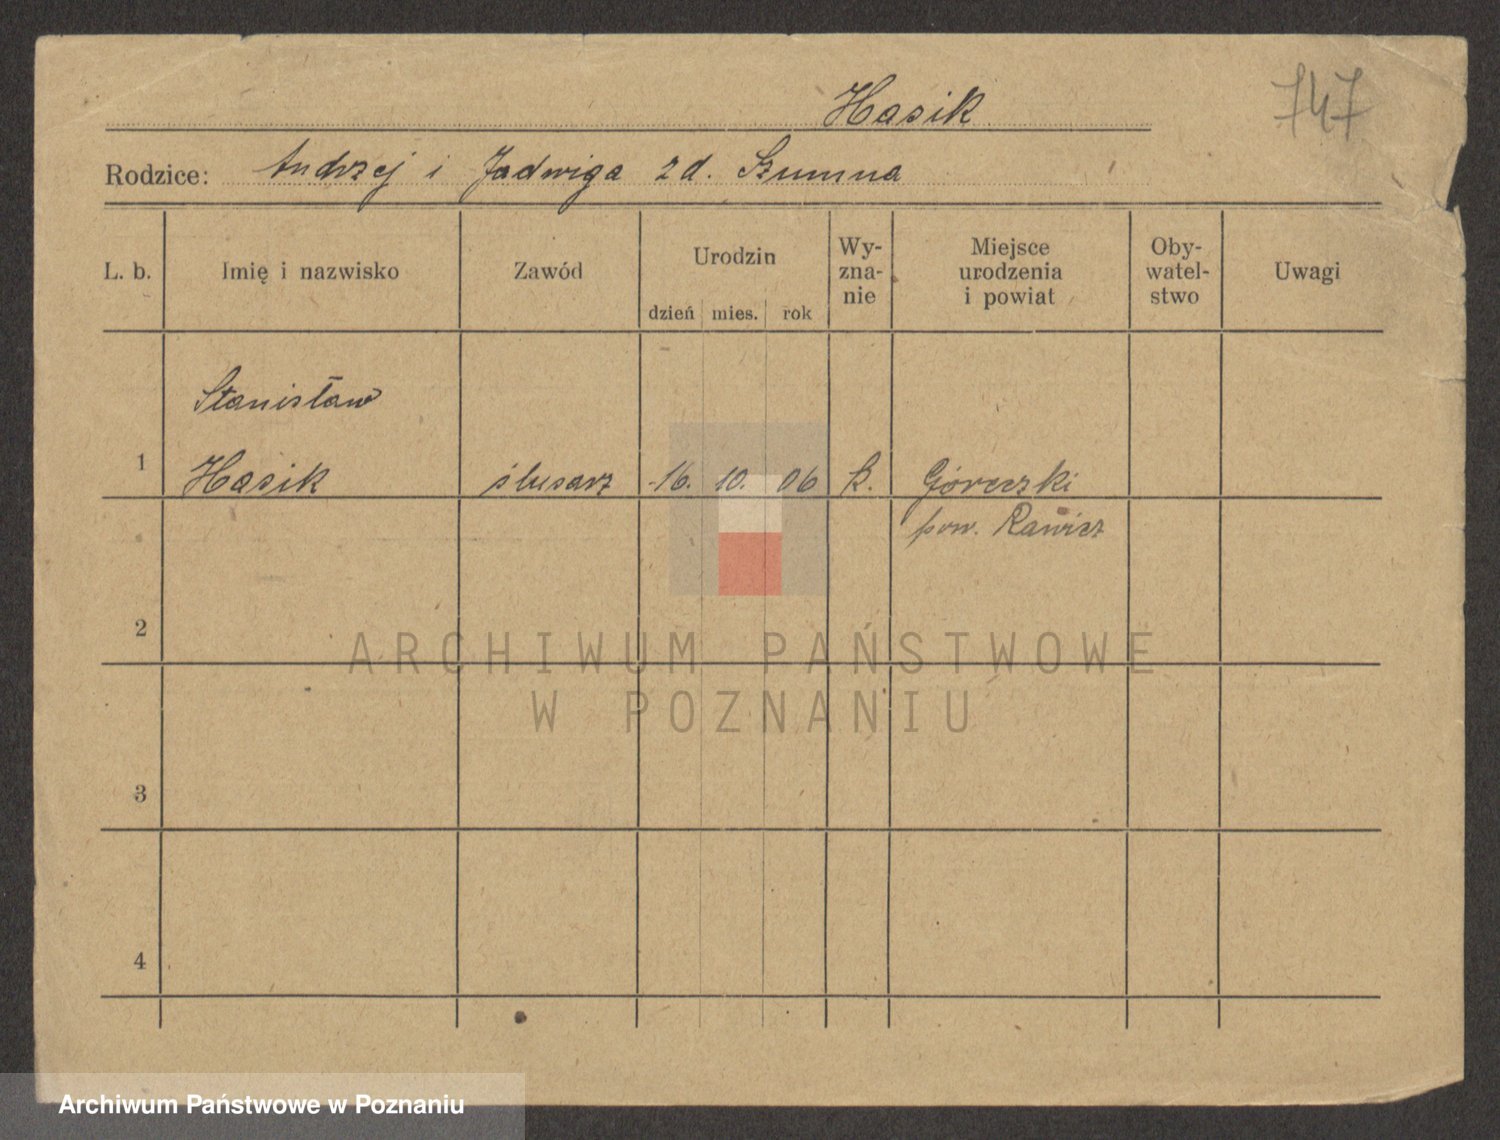 Hasik
747
Rodzice: Andrzej i Jadwiga z d. Szumna
L. b.
Imię i nazwisko
Zawód
Urodzin
dzień mies. rok
Wy-
zna-
nie
Miejsce
urodzenia
i powiat
Oby-
watel-
stwo
Uwagi
Stanisław
1 Hasik ślusarz 16. 10. 06 k. Góreczki
pow. Rawicz
2
3
4
ARCHIWUM PAŃSTWOWE
W POZNANIU
Archiwum Państwowe w Poznaniu